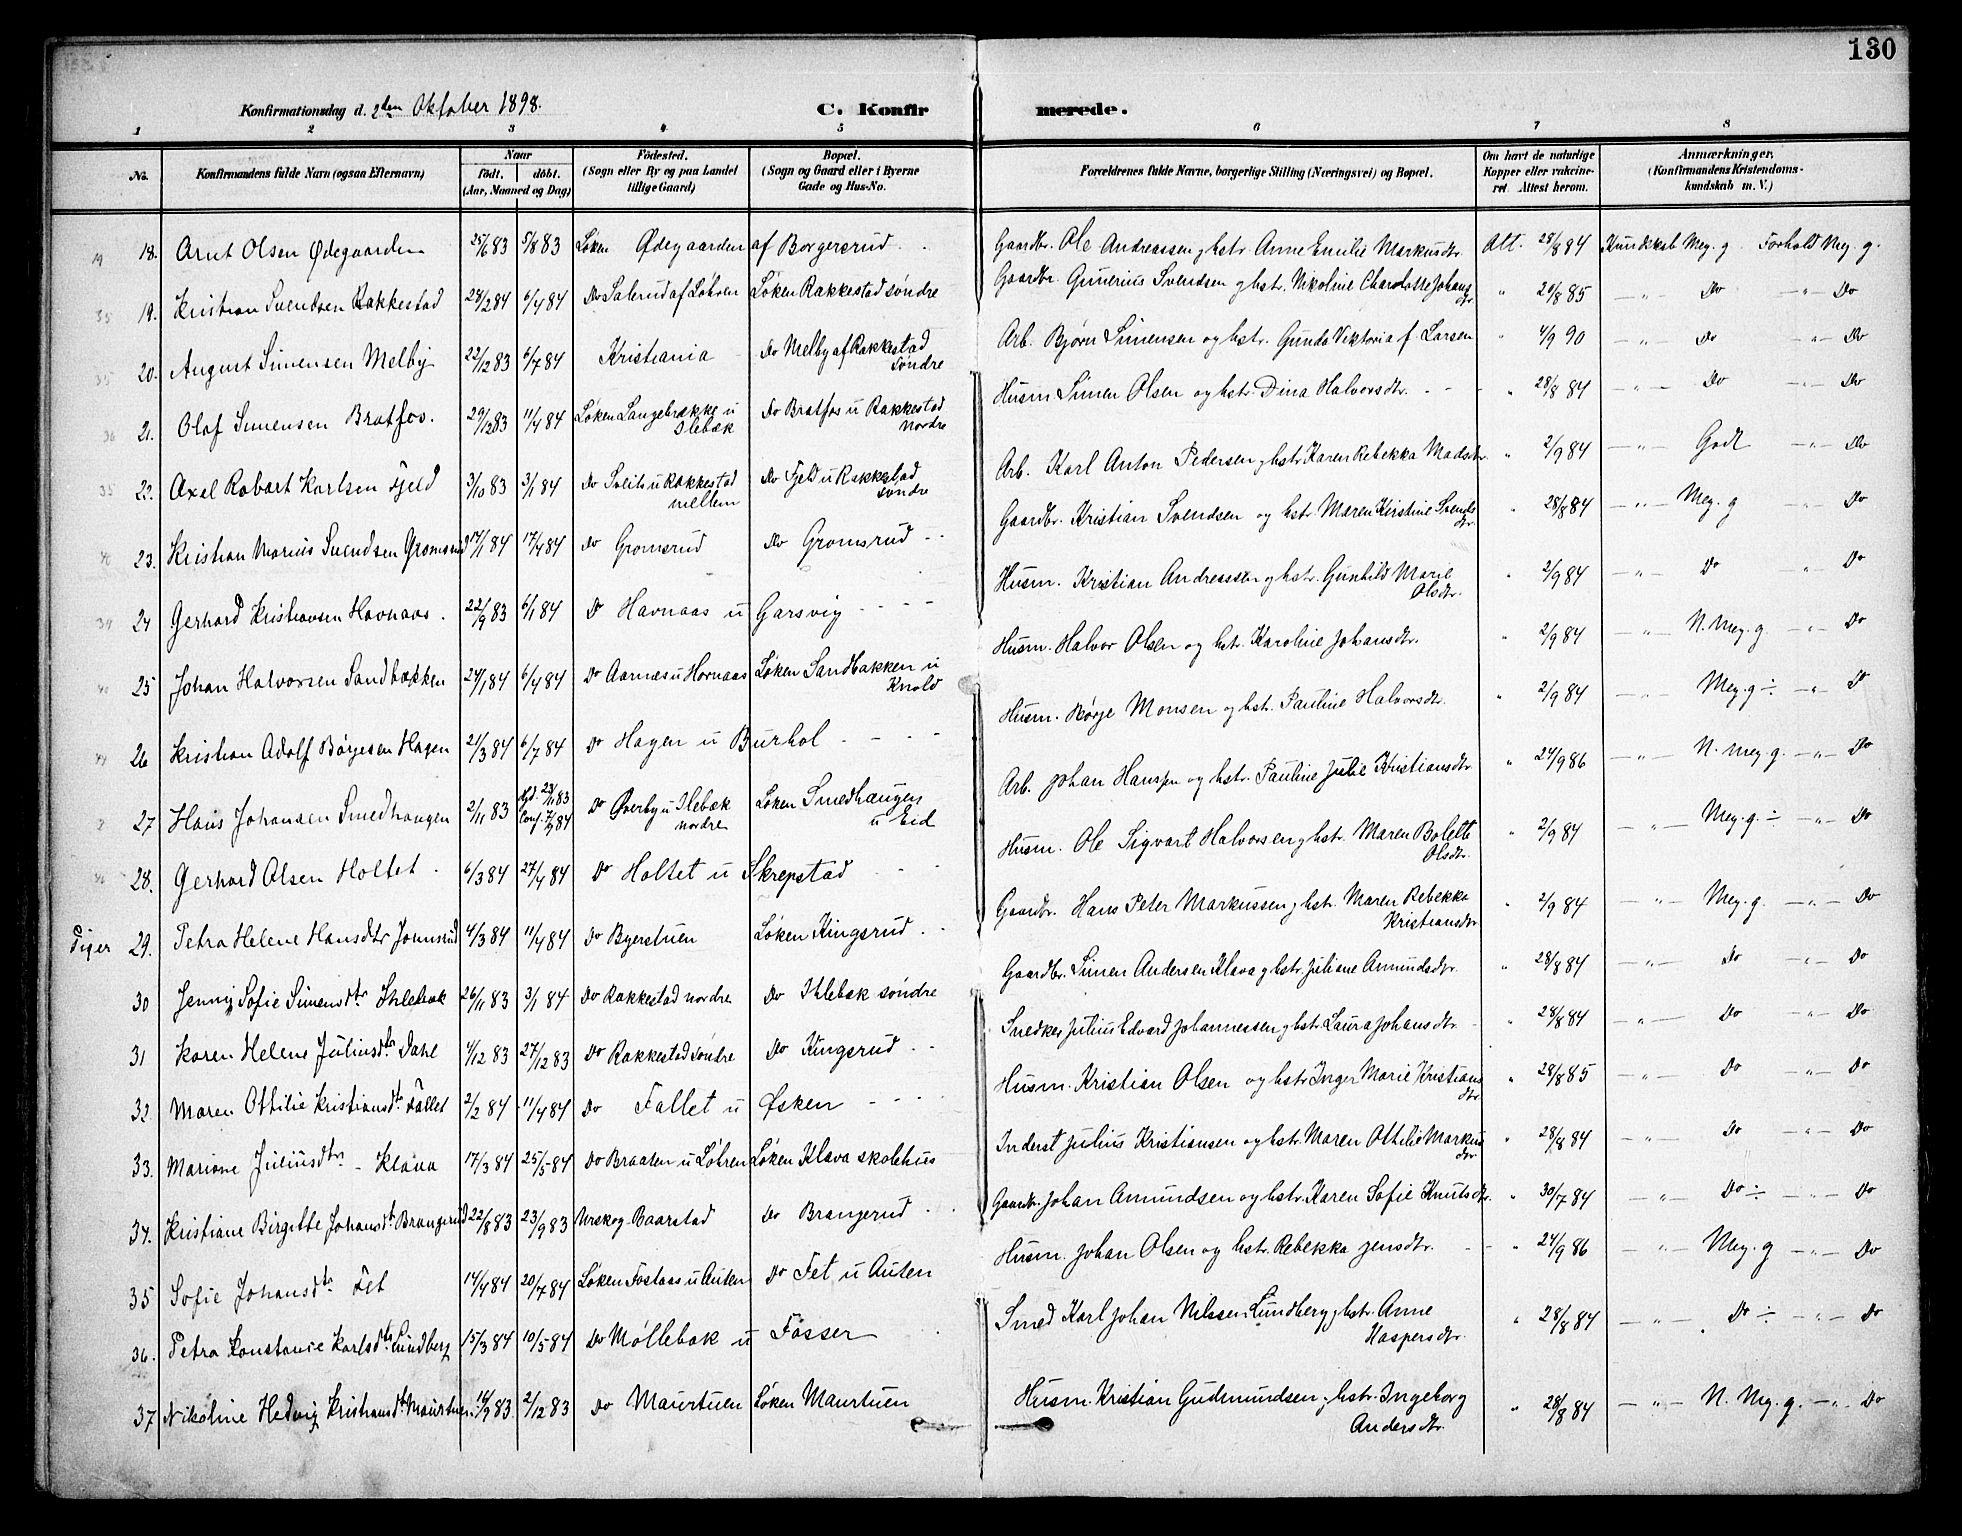 130
Konfirmationsdag d. 2den Oktober 1898.
C. Konfirmerede.
1 2 3 4 5 6 7 8
No. Konfirmandens fulde Navn (ogsaa Efternavn) Naar født. døbt. (Aar, Maaned og Dag) Fødested. (Sogn eller By og paa Landet tillige Gaard) Bopæl. (Sogn og Gaard eller i Byerne Gade og Hus-No. Forældrenes fulde Navne, borgerlige Stilling (Næringsvei) og Bopæl. Om havt de naturlige Kopper eller vakcineret. Attest herom. Anmærkninger. (Konfirmandens Kristendomskundskab m. V.)
18. Arnt Olsen Ødegaarden 25/6 83 5/8 83 Løken Ødegaarden af Borgersrud Gaardbr. Ole Andreassen og hstr. Anne Emilie Markusdtr. Att. 28/8 84 Kundskab Meg. g. Forhold Meg. g.
19. Kristian Svendsen Rakkestad 24/2 84 6/4 84 Do Salerud af Løhren Løken Rakkestad søndre Gaardbr. Gunerius Svendsen og hstr. Nikoline Charlotte Johansdtr. " 20/8 85 — " — Do — " — Do
20. August Simensen Melby 22/12 83 6/7 84 Kristiania Do Melby af Rakkestad søndre Arb. Bjørn Simensen og hstr. Gunda Viktoria f. Larsen " 4/9 90 — " — Do — " — Do
21. Olaf Simensen Bratfos. 29/12 83 11/4 84 Løken Langebrække u Slebæk Do Bratfos u Rakkestad nordre Husm. Simen Olsen og hstr. Dina Halvorsdtr. " 28/8 84 — " — Do — " — Do
22. Axel Robart Karlsen Fjeld 3/10 83 3/1 84 Do u Rakkestad mellem Do Fjeld u Rakkestad søndre Arb. Karl Anton Pedersen og hstr. Karen Rebekka Madsdtr. " 2/9 84 — " — Godt — " — Do
23. Kristian Marius Svendsen Gromsrud 17/1 84 17/4 84 Do Gromsrud Do Gromsrud Gaardbr. Kristian Svendsen og hstr. Maren Kirstine Svendsdtr. " 28/8 84 — " — Meg. g " Do
24 Gerhard Kristiansen Havnaas. 22/9 83 6/1 84 Do Havnaas u Garsvig Husm. Kristian Andreassen og hstr. Gunhild Marie Olsdtr. " 2/9 84 " Do " Do
25 Johan Halvorsen Sandbakken 24/1 84 6/4 84 Do Aarnæs u Hornaas Løken Sandbakken u Knold Husm. Halvor Olsen og hstr. Karoline Johansdtr. " 2/9 84 — " — N. Meg. g — " — Do
26 Kristian Adolf Børjesen Hagen 2/3 84 6/7 84 Do Hagen u Burhol Husm. Børje Monsen og hstr. Pauline Halvorsdtr. " 2/9 84 — " — Meg. g ÷ — " — Do
27 Hans Johansen Smedhaugen 2/11 83 Hjd. 23/11 83 Conf. 7/9 84 Do Øverby u Ilebæk nordre Løken Smedhaugen u Eid Arb. Johan Hanssen og hstr. Pauline Julie Kristiansdtr " 24/9 86 — " — N. Meg. g. — " — Do
28. Gerhard Olsen Holtet 6/3 84 27/4 84 Do Holtet u Skrepstad Husm. Ole Sigvart Halvorsen og hstr. Maren Bolette Olsdtr. " 2/9 84 — " — Meg. g. ÷ — " — Do
Piger 29. Petra Helene Hansdtr 4/3 84 11/4 84 Do Byerstuen Løken Kingsrud Gaardbr. Hans Peter Markussen og hstr. Maren Rebekka Kristiansdtr " 2/9 84 — " — Meg. g. — " — Do
30 Jenny Sofie Simensdtr Ihlebæk 26/11 83 3/1 84 Do Rakkestad nordre Do Ihlebæk søndre Gaardbr. Simen Andersen Klava og hstr. Juliane Amundsdtr. " 28/8 84 — " — Do — " — Do
31 Karen Helene Juliusdtr Dahl 4/12 83 27/12 83 Do Rakkestad søndre Do Kingsrud Snedker Julius Edvard Johannessen og hstr. Laura Johansdtr. " 28/8 84 — " — Do — " — Do
32. Maren Ottilie Kristiansdtr. Fallet 2/2 84 11/4 84 Do Fallet u Øsken Husm. Kristian Olsen og hstr. Inger Marie Kristiansdtr. " 28/8 85 — " — Do — " — Do
33. Mariane Juliusdtr. – Klava 17/3 84 25/5 84 Do Braaten u Løhren Løken Klava skolehus Inderst Julius Kristiansen og hstr. Maren Ottilie Markusdtr. " 28/8 84 — " — Do — " — Do
34. Kristiane Birgitte Johansdtr Brangerud 22/8 83 23/9 83 Urskog Baarstad Do Brangerud Gaardbr. Johan Amundsen og hstr. Karen Sofie Knutsdtr. " 30/7 84 — " — Do ÷ — " — Do
35 Sofie Johansdtr. Fet 14/4 84 20/7 84 Løken Fostaas u Auten Do Fet u Auten Husm. Johan Olsen og hstr. Rebekka Jensdtr. " 24/9 86 — " — Meg. g — " — Do
36. Petra Konstance Karlsdtr Lundberg 15/3 84 10/5 84 Do Møllebæk u Fosser Smed Karl Johan Nilssen Lundberg og hstr. Anne Kaspersdtr. " 28/8 84 — " — Do ÷ — " — Do
37 Nikoline Hedvig Kristiansdtr Maurtuen 14/9 83 2/12 83 Do Maurtuen Løken Maurtuen Husm. Kristian Gudmundsen og hstr. Ingeborg Andersdtr. " 28/8 84 — " — N. Meg. g. — " — Do